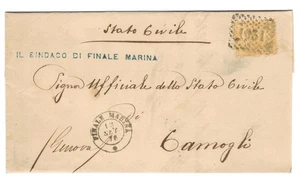 Stato Civile
IL SINDACO DI FINALE MARINA
Signor Ufficiale dello Stato Civile
FINALE MARINA
Genova
Camogli